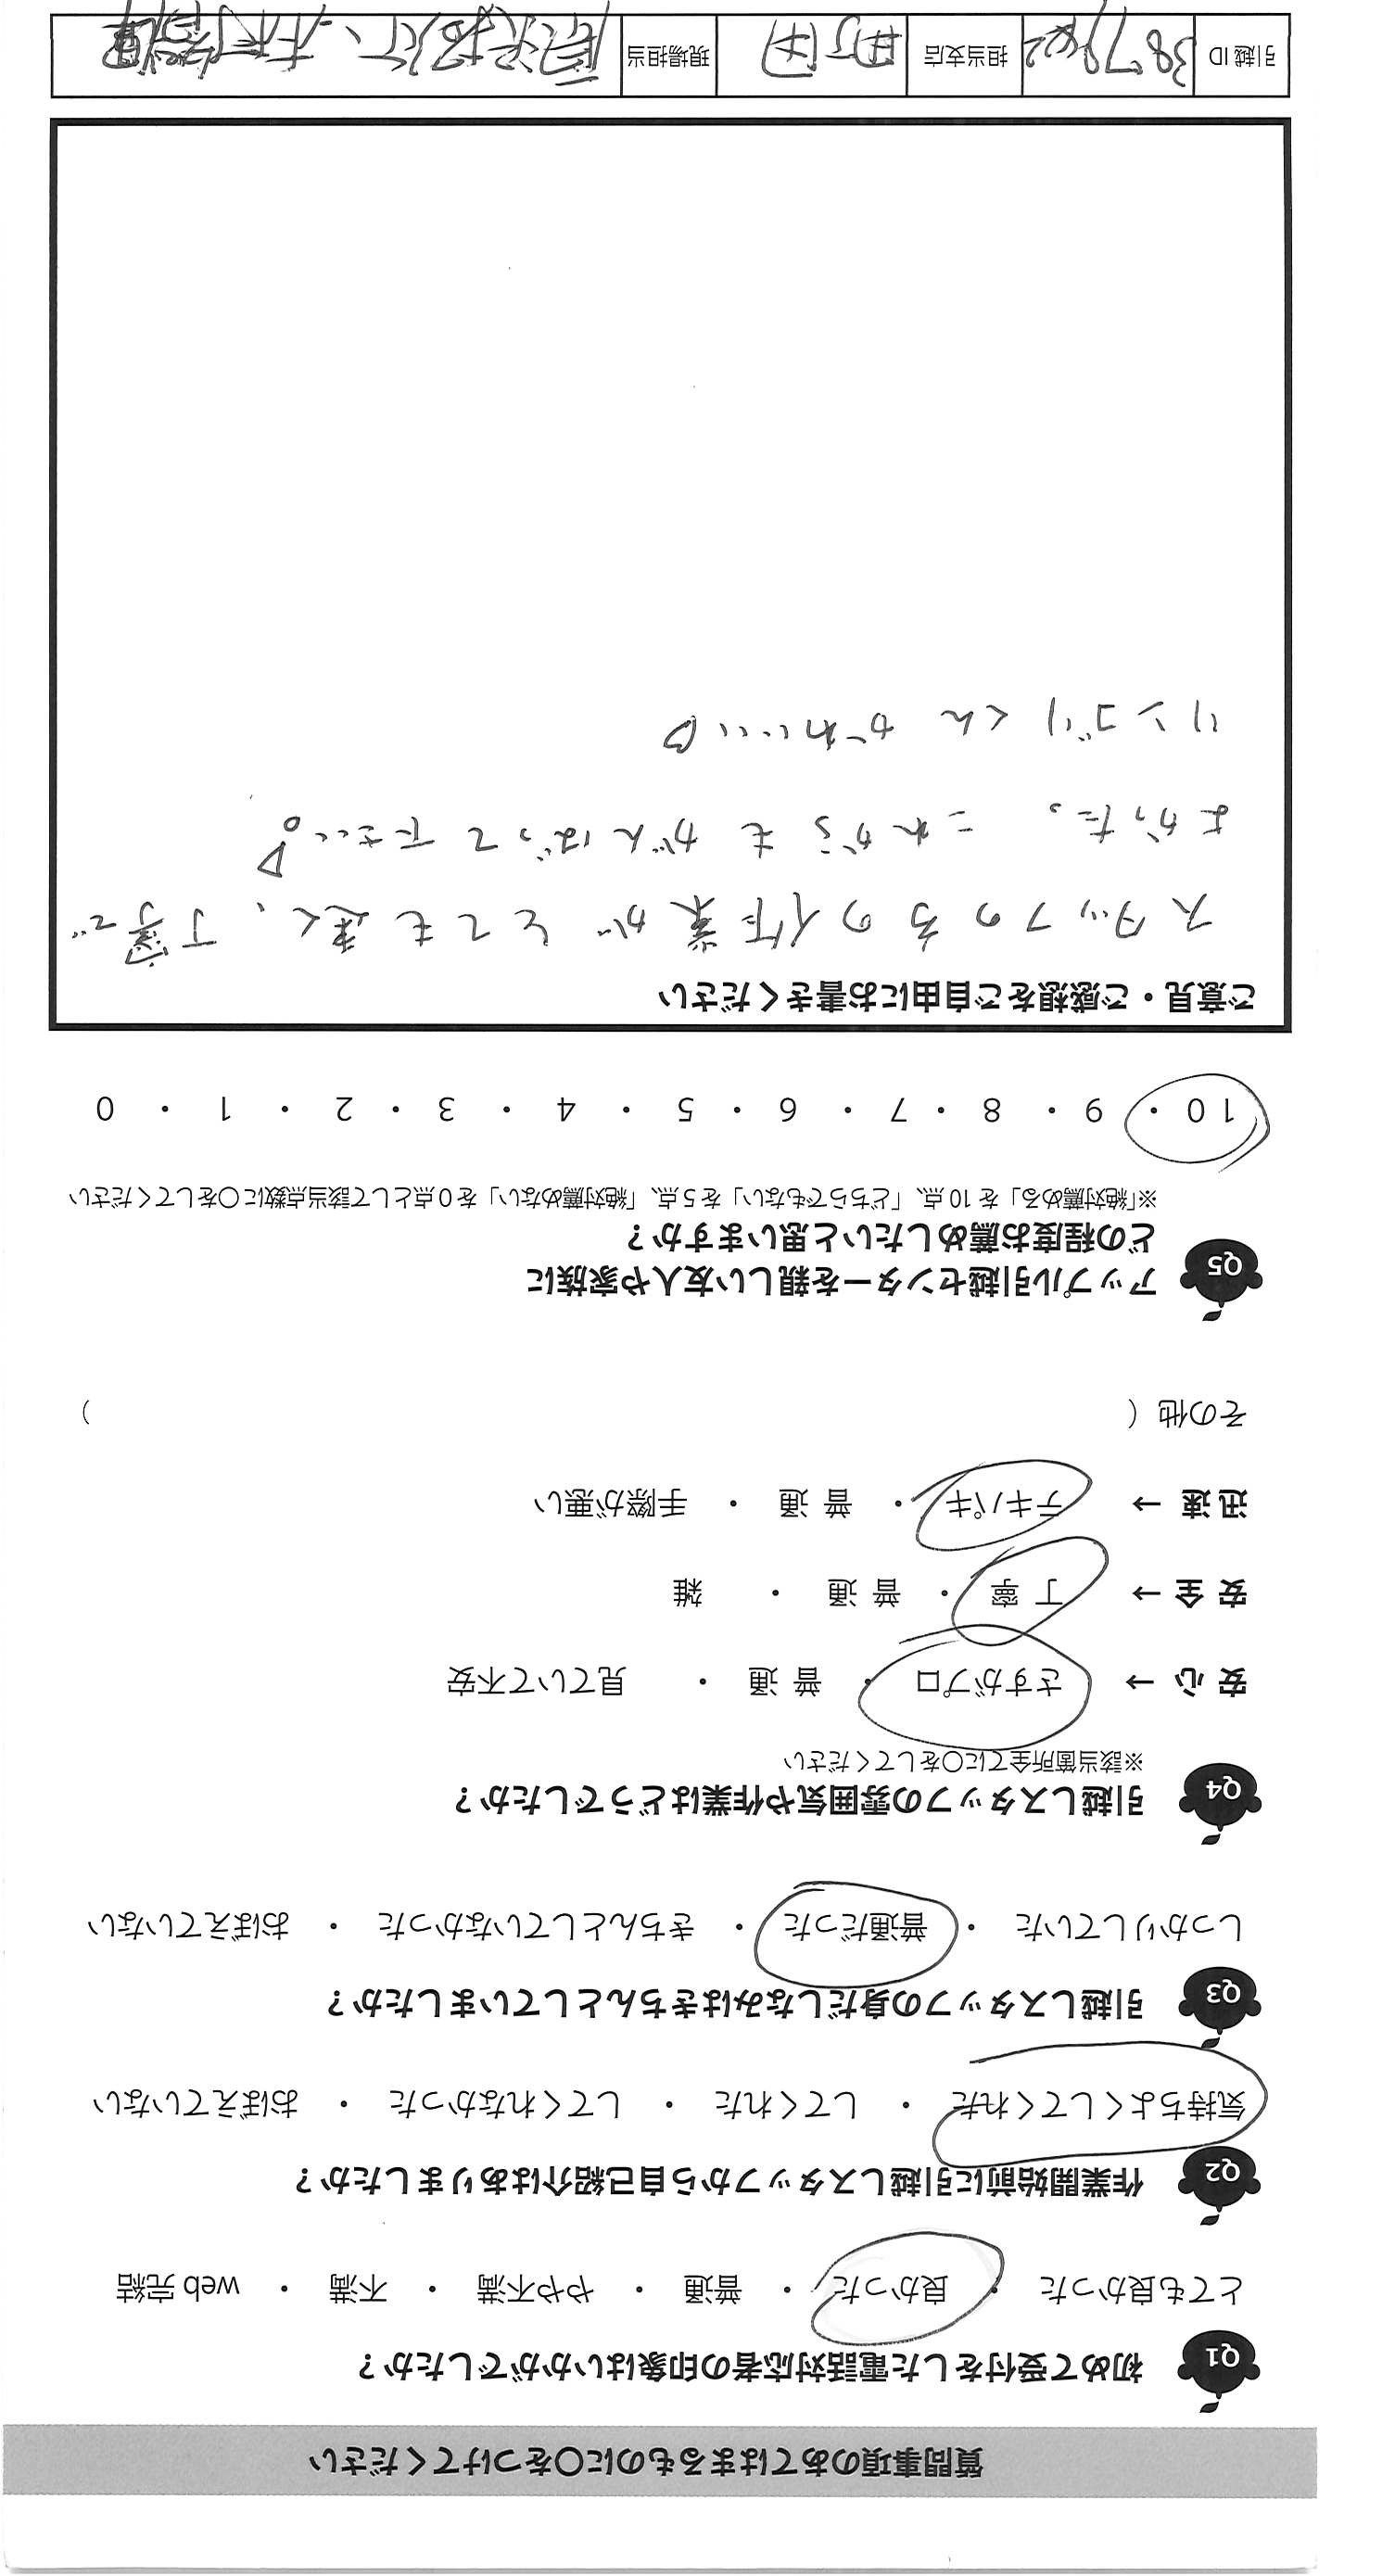 質問事項のあてはまるものに〇をつけてください
Q1 初めて受付をした電話対応者の印象はいかがでしたか？
とても良かった ・ 良かった ・ 普通 ・ やや不満 ・ 不満 ・ web 完結
Q2 作業開始前に引越しスタッフから自己紹介はありましたか？
気持ちよくしてくれた ・ してくれた ・ してくれなかった ・ おぼえていない
Q3 引越しスタッフの身だしなみはきちんとしていましたか？
しっかりしていた ・ 普通だった ・ きちんとしていなかった ・ おぼえていない
Q4 引越しスタッフの雰囲気や作業はどうでしたか？
※該当箇所全てに〇をしてください
安 心 → さすがプロ ・ 普 通 ・ 見ていて不安
安 全 → 丁 寧 ・ 普 通 ・ 雑
迅 速 → テキパキ ・ 普 通 ・ 手際が悪い
その他（ ）
Q5 アップル引越センターを親しい友人や家族に
どの程度お薦めしたいと思いますか？
※「絶対薦める」を 10 点、「どちらでもない」を 5 点、「絶対薦めない」を 0 点として該当点数に〇をしてください
10 ・ 9 ・ 8 ・ 7 ・ 6 ・ 5 ・ 4 ・ 3 ・ 2 ・ 1 ・ 0
ご意見・ご感想をご自由にお書きください
スタッフの方の作業がとても速く、丁寧で
よかった。これからもがんばって下さい。
リンゴリくんかわいい♡
引越 ID 担当支店 町田 現場担当